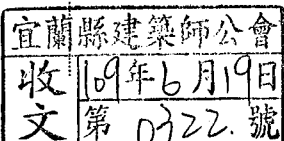 宜蘭縣建築師公會
收文
109年6月19日
第0322.號